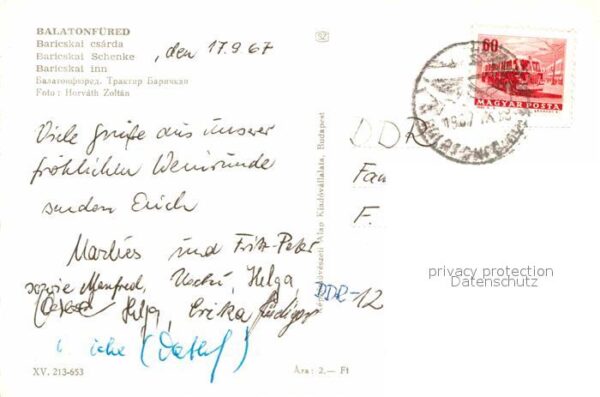 BALATONFÜRED
Baricskai csárda
Baricskai Schenke
Baricskai inn
Балатонфюред. Трактир Баричкаи
Foto: Horváth Zoltán
, den 17.9.67
Viele Grüße aus unserer
fröhlichen Weinrunde
senden Euch
Marlies und Fritz-Peter
sowie Manfred, Helga,
Helga, Erika Rüdiger
u. ich (Detlef)
XV. 213-653
Ára: 2.— Ft
Művészeti Alap Kiadóvállalata, Budapest
60f
MAGYAR POSTA
DDR
Fam
F.
DDR-12
privacy protection
Datenschutz